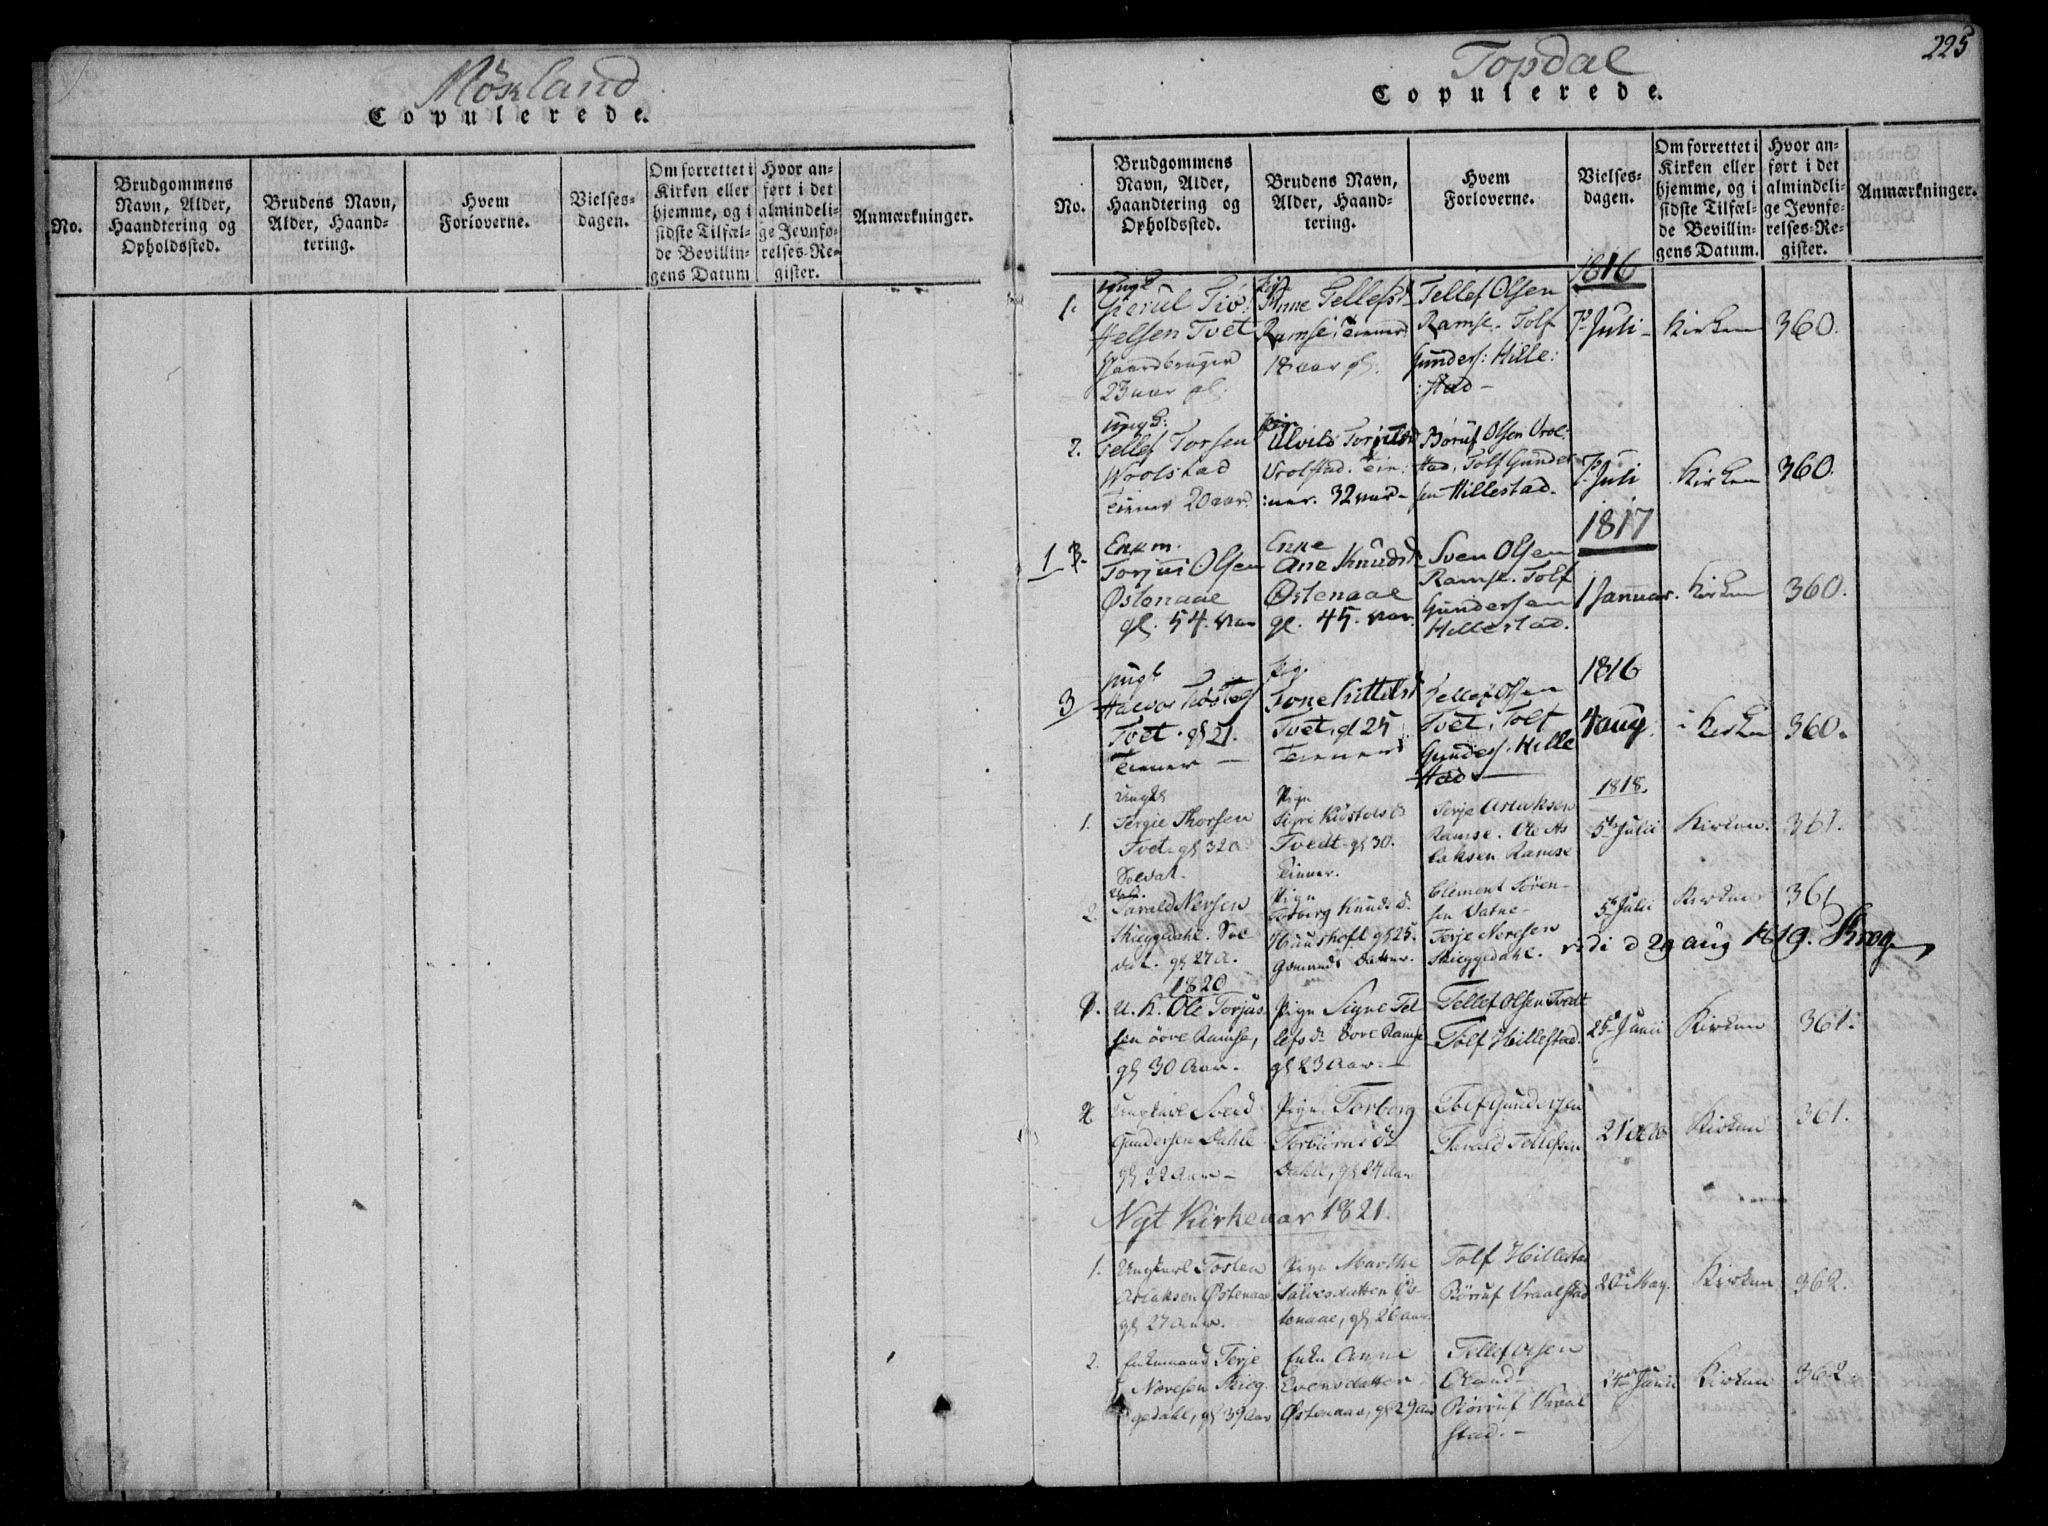 Møsland
Copulerede.
No.
Brudgommens
Navn, Alder,
Haandtering og
Opholdssted.
Brudens Navn,
Alder, Haand-
tering.
Hvem
Forloverne.
Vielses-
dagen.
Om forrettet i
Kirken eller
hjemme, og i
sidste Tilfæl-
de Bevillin-
gens Datum
Hvor an-
ført i det
almindeli-
ge Jevnfø-
relses-Re-
gister.
Anmærkninger.
225
Topdal
Copulerede.
No.
Brudgommens
Navn, Alder,
Haandtering og
Opholdssted.
Brudens Navn,
Alder, Haand-
tering.
Hvem
Forloverne.
Vielses-
dagen.
Om forrettet i
Kirken eller
hjemme, og i
sidste Tilfæl-
de Bevillin-
gens Datum.
Hvor an-
ført i det
almindeli-
ge Jevnfø-
relses-Re-
gister.
Anmærkninger.
1816
1.
Helsen Tvet
Gaardbruger
23 aar gl.
Anne Tellefsd
Ramse, Tienner
18 aar gl.
Tellef Olsen
Ramse. Tolf
Gunders: Hille:
:stad-
7 Juli-
Kirken
360.
2.
ungk:
Tellef Torsen
Woolstad
Tiener 20 aar.
pig.
Ulvild
Vrolstad. Tie-
:ner. 32 aar-
Børuf Olsen Vrol:
stad, Tolf Gunder
sen Hillestad.
7 Juli
Kirken
360.
1817
1 3.
Enkm.
Torjus Olsen
Østenaae
gl. 54. aar
Enke
Ane Knudsd
Østenaae
gl. 45. aar.
Sven Olsen
Ramse. Tolf
Gundersen
Hillestad.
1 Januar.
Kirken
360.
1816
3
ungk
Halvor
Tvet. gl 21.
Tienner -
pig.
Tone Kittelsd
Tvet. gl 25
Tienner
Tellef Olsen
Tvet, Tolf
Gunders. Hille
stad -
4 aug.
i Kirken
360.
1818.
1.
Ungk
Tergie Thorsen
Tvet. gl 32 a.
Soldat.
Pign
Tvedt. gl 30.
Tienner.
Terje Aslaksen
Ramse. Ole As
laksen Ramse
5 Julii
Kirken.
361.
2.
Tarald Nersen
Skieggedahl. Sol
dat. gl 27 a.
Pign
Torberg Knudsd.
Haushoft gl 25.
Clement Sören-
sen Vatne-
Terje Neresen
Skieggedahl.
5 Julii
Kirken
361
vidi d 29 aug 1819. Krog
1820
U. K. Ole Torjus
sen övre Ramse,
gl 30 Aar.
Pign Signe Tel
lefs d övre Ramse
gl 23 Aar.-
Tellef Olsen Tvedt
Tolf Hillestad.
25 Junii
Kirken
361.
2
Ungkarl
Gundersen Dahle
gl 32 Aar-
Pign Torborg
Torbiörns d
Dahle, gl 24 Aar
Tolf Gundersen
Tarald Tellefsen
21
Kirken
361.
Nyt Kirkeaar 1821.
1.
Ungkarl Tosten
Aslaksen Østenaae,
gl 27 Aar.
Pign Marthe
Salvesdatter Øs-
tenaae, gl 26 aar.
Tolf Hillestad
Börruf Vraalstad
20 May.
Kirken
362.
2.
Enkemand Terje
Neresen Skieg-
gedahl, gl 39 Aar
Enke Anne
Evensdatter
Østenaae, gl 29 Aar
Tellef Olsen
Börruf Vraal
stad.-
24 Junii
Kirken
362.